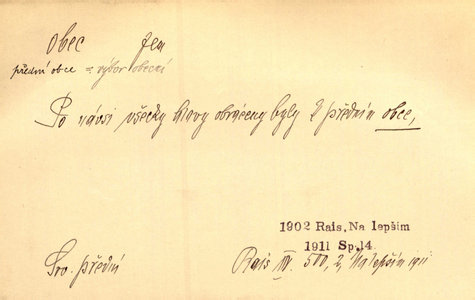 obec fem
přední obce = výbor obecní
Po návsi všecky hlavy obráceny byly k předním obce,
1902 Rais, Na lepším
1911 Sp.14.
Srv. přední
Rais III. 500, 2, Na lepším 1911